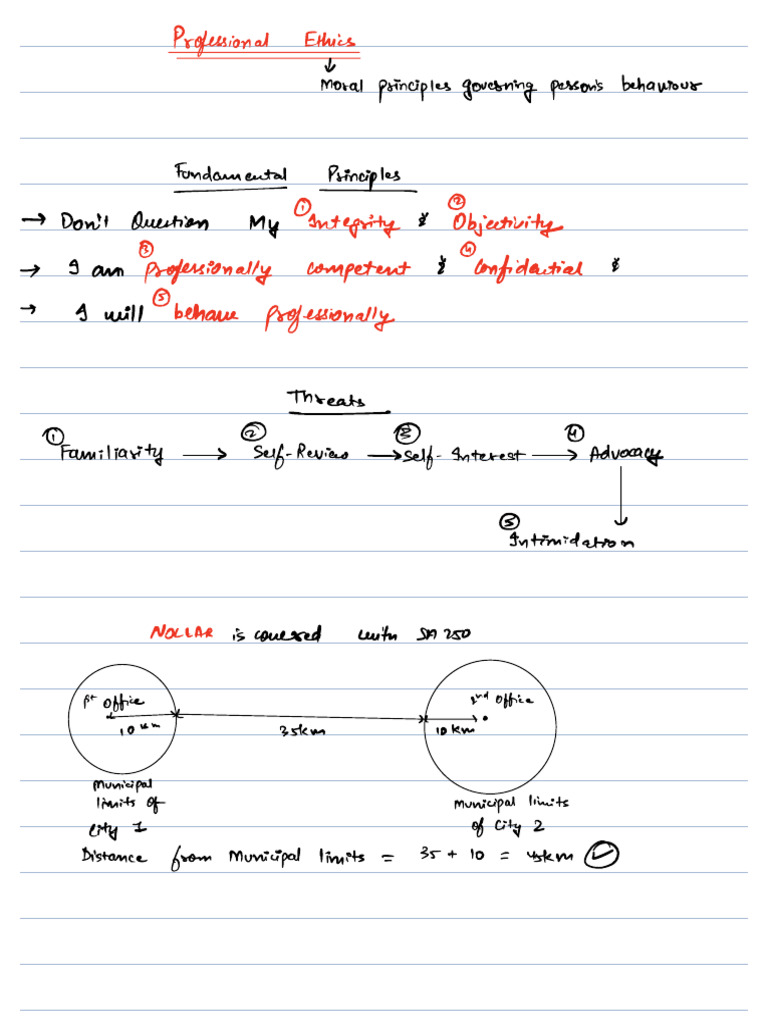 Professional Ethics
↓
Moral principles governing person's behaviour
Fundamental Principles
→ Don't Question My ① Integrity & ② Objectivity
→ I am ③ professionally competent & ④ Confidential &
→ I will ⑤ behave professionally
Threats
① Familiarity → ② Self-Review → ③ Self-Interest → ④ Advocacy
↓
⑤ Intimidation
NOCLAR is covered with SA 250
1st Office
2nd Office
10 km
35km
10 km
Municipal limits of City 1
Municipal limits of City 2
Distance from Municipal limits = 35 + 10 = 45km ✓